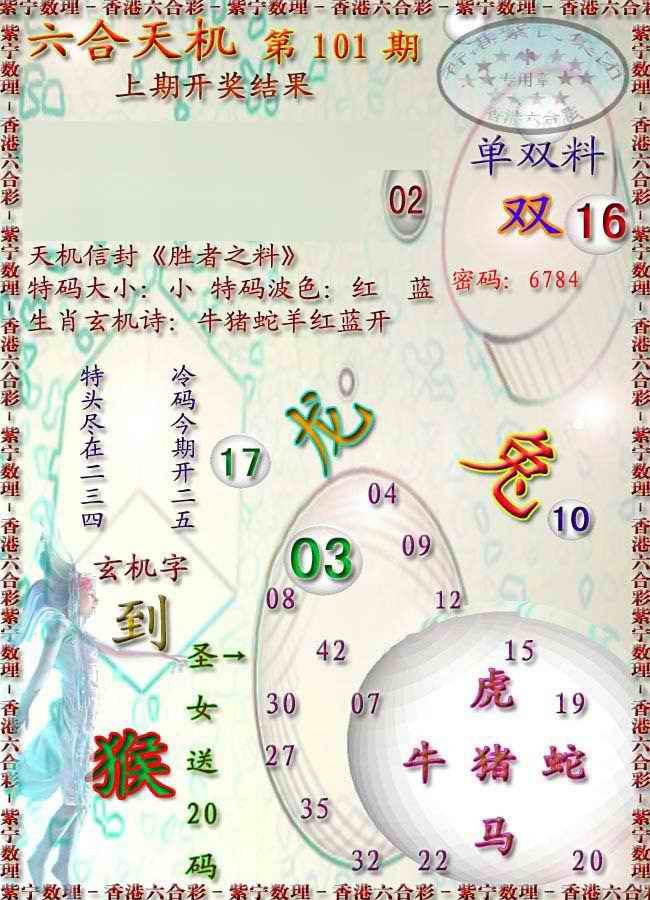 紫宁数理－香港六合彩－紫宁数理－香港六合彩－紫宁数理－香港六合彩
六合天机 第 101 期
上期开奖结果
香港紫氏集团
专用章
香港六合彩
单双料
双 16
02
天机信封《胜者之料》
特码大小：小 特码波色：红 蓝
密码：6784
生肖玄机诗：牛猪蛇羊红蓝开
特头尽在二三四
冷码今期开二五
17
龙
兔
10
04
03
09
08
12
玄机字
到
圣→女送20码
猴
42
15
30
07
虎
19
27
牛 猪 蛇
35
马
32
22
20
紫宁数理－香港六合彩－紫宁数理－香港六合彩－紫宁数理－香港六合彩